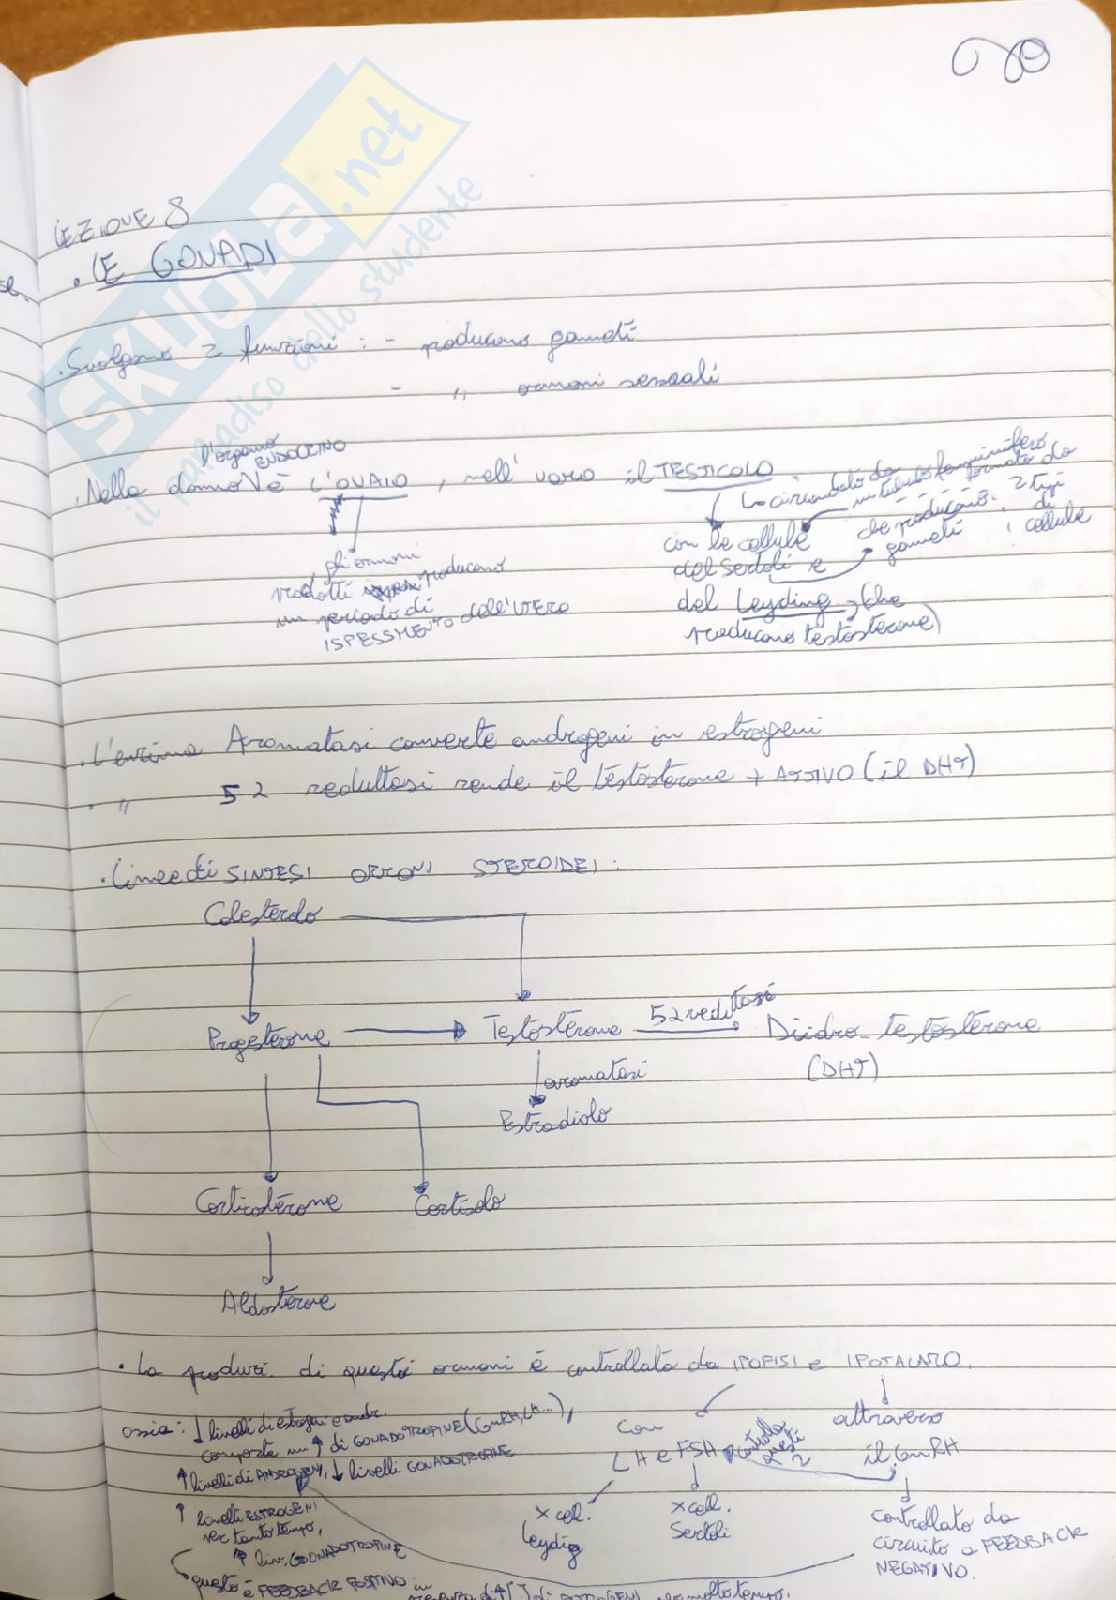 LEZIONE 8
• LE GONADI
• Svolgono 2 funzioni : - producono gameti
- " ormoni sessuali
l'organo
ENDOCRINO
• Nella donna è L'OVAIO, nell' uomo il TESTICOLO
gli ormoni
prodotti producono
un periodo di
ISPESSIMENTO dell'UTERO
↳ circondato da
un tubulo seminifero
che producono
gameti
formato da
2 tipi
di
cellule
con le cellule
del Sertoli e
del Leyding, (che
producono testosterone)
• L'enzima Aromatasi converte androgeni in estrogeni
• " 5 2 reduttasi rende il testosterone + ATTIVO (il DHT)
• Linee di SINTESI ORMONI STEROIDEI :
Colesterolo
Progesterone → Testosterone 52 reduttasi → Diidro-testosterone
(DHT)
aromatasi
Estradiolo
Corticosterone
Cortisolo
Aldosterone
• La produz. di questi ormoni è controllata da IPOFISI e IPOTALAMO.
ossia : ↓ livelli di estrogeni e andr.
comporta un ↑ di GONADOTROPINE (GnRH, LH...),
↑ livelli di ANDROGENI, ↓ livelli GONADOTROPINE
↑ livelli ESTROGENI
per tanto tempo,
↑ liv. GONADOTROPINE
questo è FEEDBACK POSITIVO in
di ESTROGENI per molto tempo.
con
LH e FSH
controlla
questi
2
attraverso
il GnRH
x cell.
Leydig
x cell.
Sertoli
controllato da
circuito a FEEDBACK
NEGATIVO.
skuola.net
il paradiso dello studente